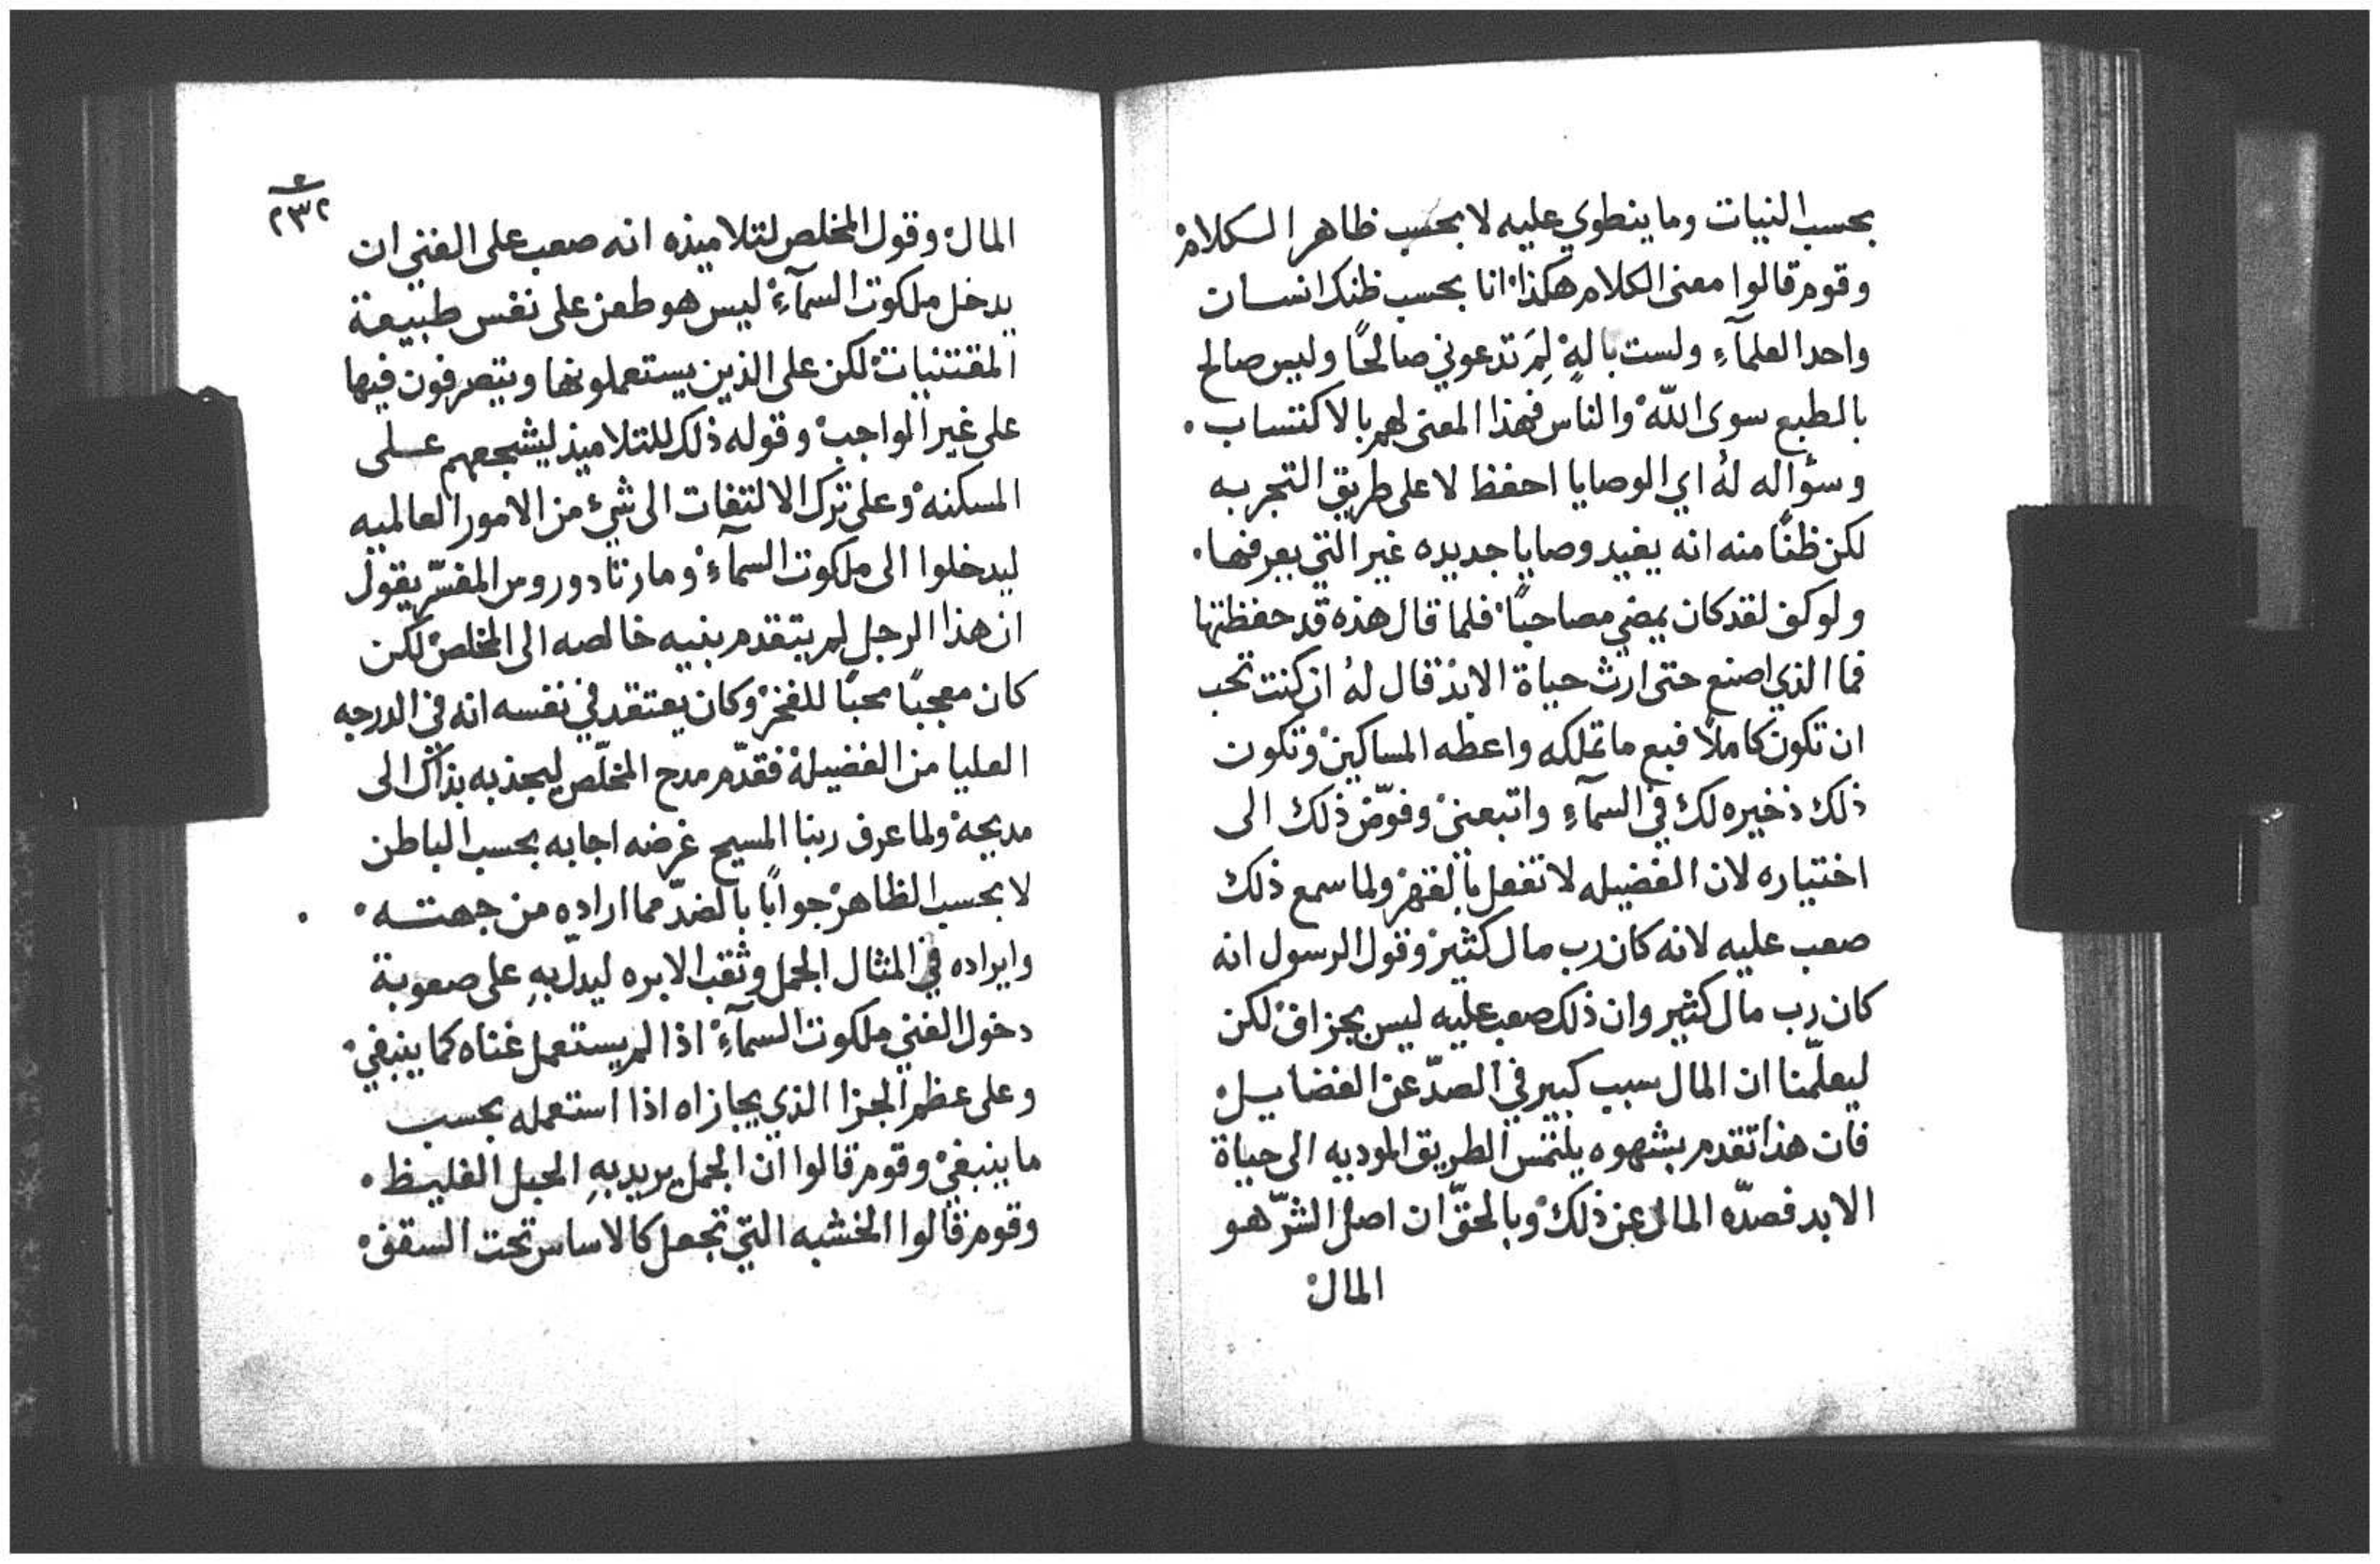 بحسب النيات وما ينطوي عليه لا بحسب ظاهر الكلام
وقوم قالوا معنى الكلام هكذا انا بحسب ظنك انسان
واحد العلمآءِ ولست بالهٍ لِمَ تدعوني صالحًا وليس صالح
بالطبع سوى اللّه والناس فهذا المعنى لهم بالاكتساب
وسؤاله لهُ اي الوصايا احفظ لا على طريق التجربه
لكن ظنًّا منه انه يفيد وصايا جديده غير التي يعرفها
ولو كف لقد كان يمضي مصاحبًا فلما قال هذه قد حفظتها
فما الذي اصنع حتى ارث حياة الابد قال لهُ ان كنت تحب
ان تكون كاملاً فبع ما تملكه واعطه المساكين وتكون
ذلك ذخيره لك في السمآءِ واتبعني وفوّض ذلك الى
اختياره لان الفضيله لا تفعل بالقهر ولما سمع ذلك
صعب عليه لانه كان رب مال كثير وقول الرسول انه
كان رب مال كثير وان ذلك صعب عليه ليس بجزاف لكن
ليعلّمنا ان المال سبب كبير في الصدّ عن الفضايل
فان هذا تقدم بشهوه يلتمس الطريق الموديه الى حياة
الابد فصدّه المال عن ذلك وبالحقّ ان اصل الشرّ هو
المال
٢٣٢
المال وقول المخلص لتلاميذه انه صعب على الغني ان
يدخل ملكوت السمآءِ ليس هو طعن على نفس طبيعة
المقتنيات لكن على الذين يستعملونها ويتصرفون فيها
على غير الواجب وقوله ذلك للتلاميذ ليشجعهم على
المسكنه وعلى ترك الالتفات الى شيء من الامور العالميه
ليدخلوا الى ملكوت السمآء ومار تادوروس المفسّر يقول
ان هذا الرجل لم يتقدم بنيه خالصه الى المخلص لكن
كان معجبًا محبًا للفخر وكان يعتقد في نفسه انه في الدرجه
العليا من الفضيلة فقدّم مدح المخلّص ليجذبه بذاك الى
مديحه ولما عرف ربنا المسيح غرضه اجابه بحسب الباطن
لا بحسب الظاهر جوابًا بالضدّ مما اراده من جهته
وايراده في المثال الجمل وثقب الابره ليدلّ بهِ على صعوبة
دخول الغني ملكوت السمآءِ اذا لم يستعمل غناه كما ينبغي
وعلى عظم الجزا الذي يجازاه اذا استعمله بحسب
ما ينبغي وقوم قالوا ان الجمل يريد بهِ الحبل الغليظ
وقوم قالوا الخشبه التي تجعل كالاساس تحت السقف